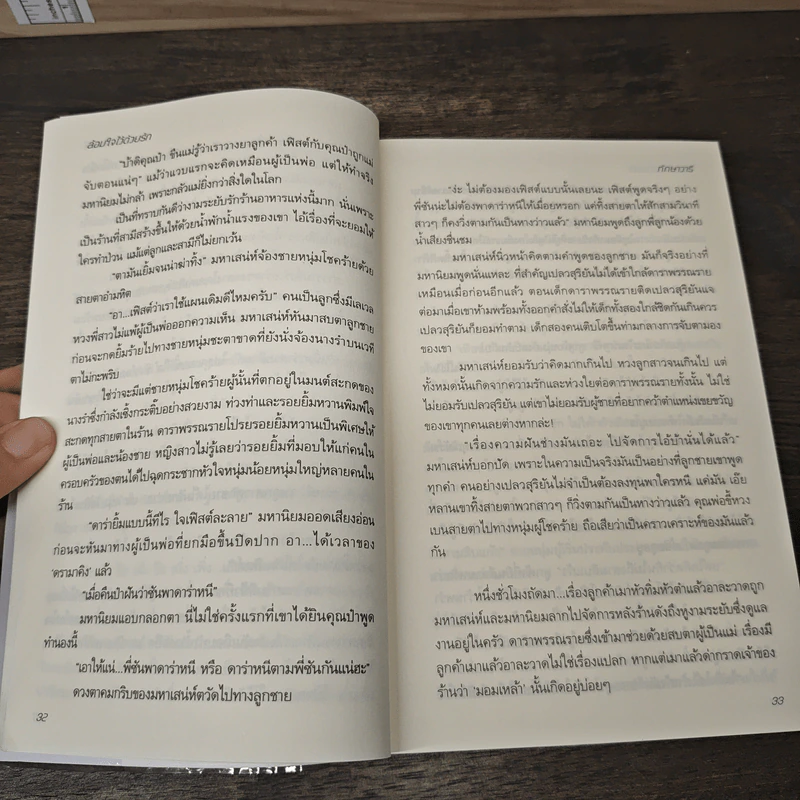 ล้อมใจไว้ด้วยรัก
"บ้าดิคุณป๋า ขืนแม่รู้ว่าเราวางยาลูกค้า เฟิสต์กับคุณป๋าถูกแม่
จับตอนแน่ๆ" แม้ว่าแวบแรกจะคิดเหมือนผู้เป็นพ่อ แต่ให้ทำจริง
มหานิยมไม่กล้า เพราะกลัวแม่ยิ่งกว่าสิ่งใดในโลก
เป็นที่ทราบกันดีว่างามระยับรักร้านอาหารแห่งนี้มาก นั่นเพราะ
เป็นร้านที่สามีสร้างขึ้นให้ด้วยน้ำพักน้ำแรงของเขา ไอ้เรื่องที่จะยอมให้
ใครทำป่วน แม้แต่ลูกและสามีก็ไม่ยกเว้น
"ตามันเยิ้มจนน่าฆ่าทิ้ง" มหาเสน่ห์จ้องชายหนุ่มโชคร้ายด้วย
สายตาอำมหิต
"อา...เฟิสต์ว่าเราใช้แผนเดิมดีไหมครับ" คนเป็นลูกซึ่งมีเลเวล
หวงพี่สาวไม่แพ้ผู้เป็นพ่อออกความเห็น มหาเสน่ห์หันมาสบตาลูกชาย
ก่อนจะกดยิ้มร้ายไปทางชายหนุ่มชะตาขาดที่ยังนั่งจ้องนางรำบนเวที
ตาไม่กะพริบ
ใช่ว่าจะมีแต่ชายหนุ่มโชคร้ายผู้นั้นที่ตกอยู่ในมนต์สะกดของ
นางรำซึ่งกำลังเซิ้งกระติ๊บอย่างสวยงาม ท่วงท่าและรอยยิ้มหวานพิมพ์ใจ
สะกดทุกสายตาในร้าน ดาราพรรณรายโปรยรอยยิ้มหวานเป็นพิเศษให้
ผู้เป็นพ่อและน้องชาย หญิงสาวไม่รู้เลยว่ารอยยิ้มที่มอบให้แก่คนใน
ครอบครัวของตนได้ไปฉุดกระชากหัวใจหนุ่มน้อยหนุ่มใหญ่หลายคนใน
ร้าน
"ดาร่ายิ้มแบบนี้ทีไร ใจเฟิสต์ละลาย" มหานิยมออดเสียงอ่อน
ก่อนจะหันมาทางผู้เป็นพ่อที่ยกมือขึ้นปิดปาก อา...ได้เวลาของ
'ดรามาคิง' แล้ว
"เมื่อคืนป๋าฝันว่าซันพาดาร่าหนี"
มหานิยมแอบกลอกตา นี่ไม่ใช่ครั้งแรกที่เขาได้ยินคุณป๋าพูด
ทำนองนี้
"เอาให้แน่...พี่ซันพาดาร่าหนี หรือ ดาร่าหนีตามพี่ซันกันแน่ฮะ"
ดวงตาคมกริบของมหาเสน่ห์ตวัดไปทางลูกชาย
32
ทักษาวารี
"ง่ะ ไม่ต้องมองเฟิสต์แบบนั้นเลยนะ เฟิสต์พูดจริงๆ อย่าง
พี่ซันน่ะไม่ต้องพาดาร่าหนีให้เมื่อยหรอก แค่ทิ้งสายตาให้สักสามวินาที
สาวๆ ก็คงวิ่งตามกันเป็นหางว่าวแล้ว" มหานิยมพูดถึงลูกพี่ลูกน้องด้วย
น้ำเสียงชื่นชม
มหาเสน่ห์นิ่วหน้าคิดตามคำพูดของลูกชาย มันก็จริงอย่างที่
มหานิยมพูดนั่นแหละ ที่สำคัญเปลวสุริยันไม่ได้เข้าใกล้ดาราพรรณราย
เหมือนเมื่อก่อนอีกแล้ว ตอนเด็กดาราพรรณรายติดเปลวสุริยันแจ
ต่อมาเมื่อเขาห้ามพร้อมทั้งออกคำสั่งไม่ให้เด็กทั้งสองใกล้ชิดกันเกินควร
เปลวสุริยันก็ยอมทำตาม เด็กสองคนเติบโตขึ้นท่ามกลางการจับตามอง
ของเขา
มหาเสน่ห์ยอมรับว่าคิดมากเกินไป หวงลูกสาวจนเกินไป แต่
ทั้งหมดนั้นเกิดจากความรักและห่วงใยต่อดาราพรรณรายทั้งนั้น ไม่ใช่
ไม่ยอมรับเปลวสุริยัน แต่เขาไม่ยอมรับผู้ชายที่อยากคว้าตำแหน่งเขยขวัญ
ของเขาทุกคนเลยต่างหากล่ะ!
"เรื่องความฝันช่างมันเถอะ ไปจัดการไอ้บ้านั่นได้แล้ว"
มหาเสน่ห์บอกปัด เพราะในความเป็นจริงมันเป็นอย่างที่ลูกชายเขาพูด
ทุกคำ คนอย่างเปลวสุริยันไม่จำเป็นต้องลงทุนพาใครหนี แค่มัน เอ๊ย
หลานเขาทิ้งสายตาพวกสาวๆ ก็วิ่งตามกันเป็นหางว่าวแล้ว คุณพ่อขี้หวง
เบนสายตาไปทางหนุ่มผู้โชคร้าย ถือเสียว่าเป็นคราวเคราะห์ของมันแล้ว
กัน
หนึ่งชั่วโมงถัดมา...เรื่องลูกค้าเมาหัวทิ่มหัวตำแล้วอาละวาดถูก
มหาเสน่ห์และมหานิยมลากไปจัดการหลังร้านดังถึงหูงามระยับซึ่งดูแล
งานอยู่ในครัว ดาราพรรณรายซึ่งเข้ามาช่วยด้วยสบตาผู้เป็นแม่ เรื่องมี
ลูกค้าเมาแล้วอาละวาดไม่ใช่เรื่องแปลก หากแต่เมาแล้วด่ากราดเจ้าของ
ร้านว่า 'มอมเหล้า' นั้นเกิดอยู่บ่อยๆ
33